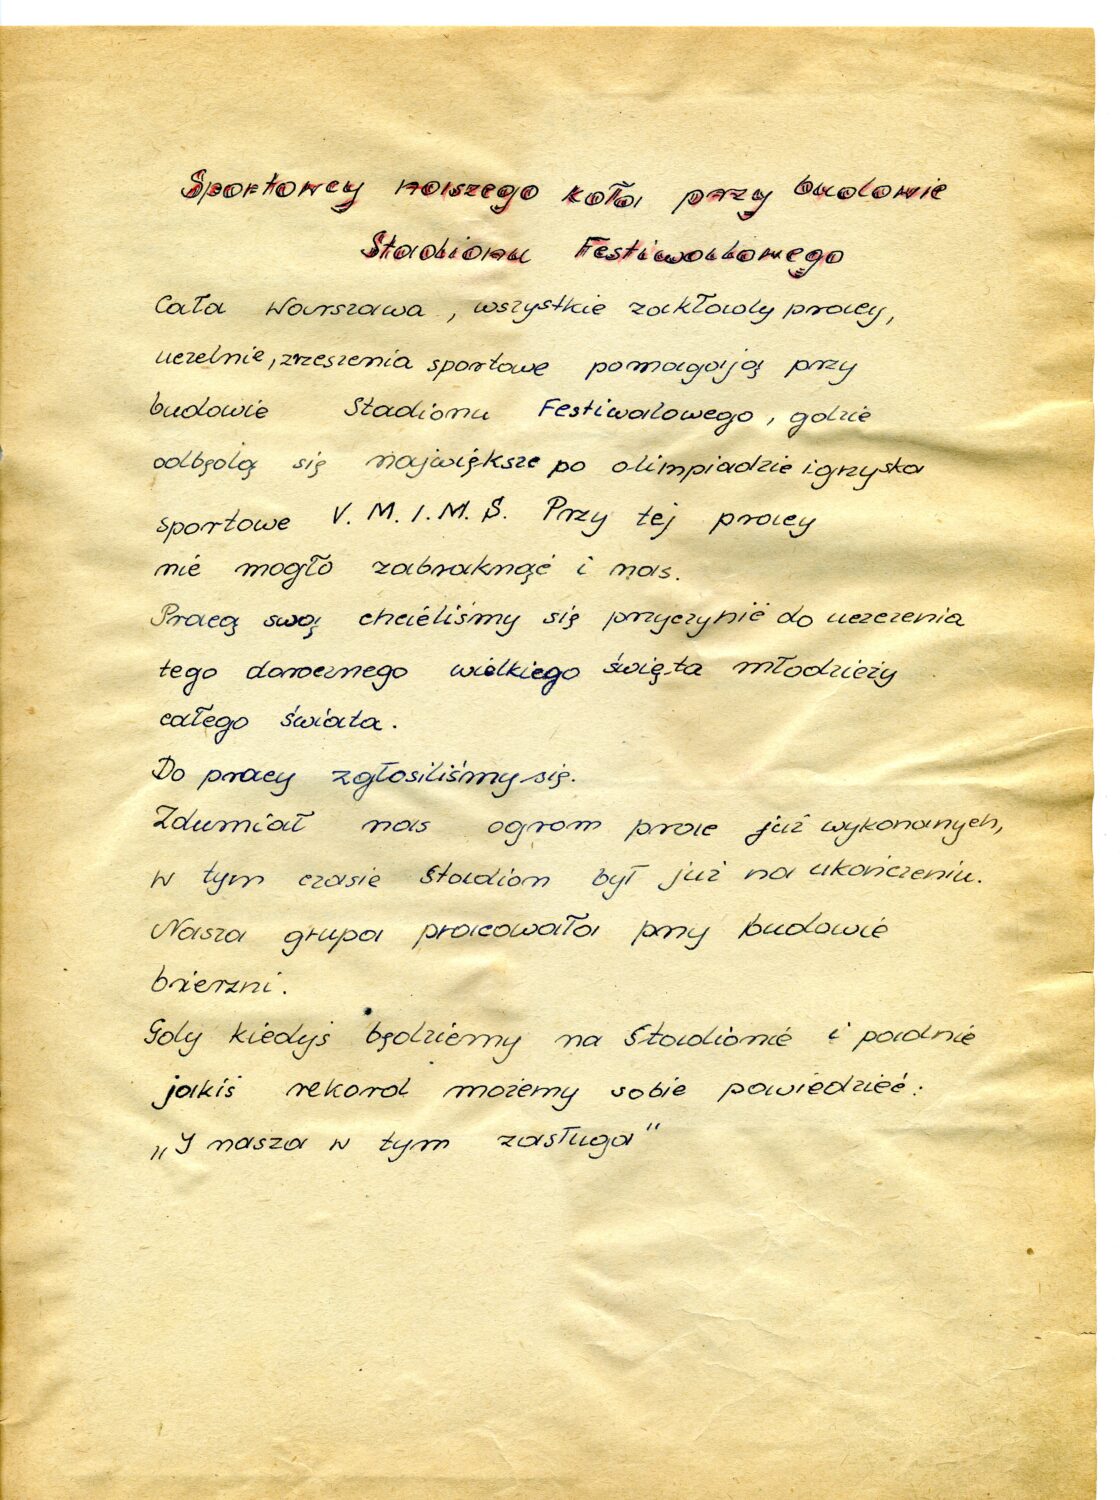 Sportowcy naszego koła przy budowie
Stadionu Festiwalowego
Cała Warszawa, wszystkie zakłady pracy,
uczelnie, zrzeszenia sportowe pomagają przy
budowie Stadionu Festiwalowego, gdzie
odbędą się największe po olimpiadzie igrzyska
sportowe V. M. I. M. S. Przy tej pracy
nie mogło zabraknąć i nas.
Pracą swoją chcieliśmy się przyczynić do uczczenia
tego dorocznego wielkiego święta młodzieży
całego świata.
Do pracy zgłosiliśmy się.
Zdumiał nas ogrom prac już wykonanych,
w tym czasie Stadion był już na ukończeniu.
Nasza grupa pracowała przy budowie
bierzni.
Gdy kiedyś będziemy na Stadionie i padnie
jakiś rekord możemy sobie powiedzieć:
„I nasza w tym zasługa"